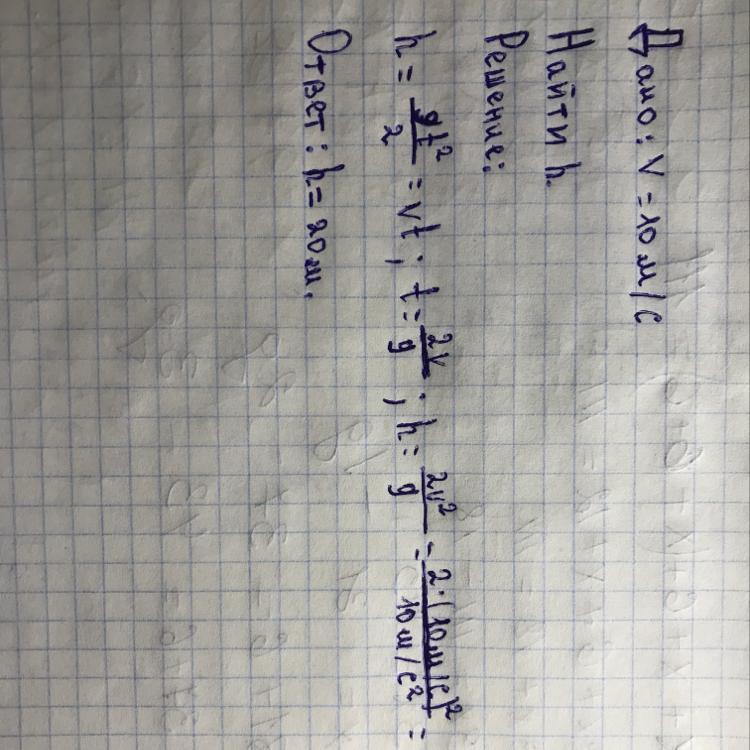 Дано: V = 10 м/с
Найти h.
Решение:
h = gt²/2 = Vt; t = 2V/g; h = 2V²/g = 2·(10 м/с)²/10 м/с² =
Ответ: h = 20 м.